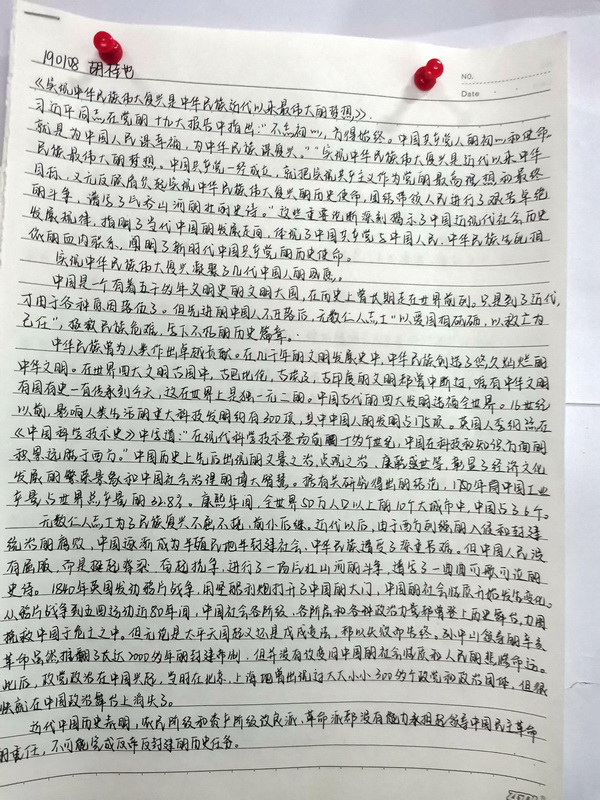 190108 胡
NO.
Date
《实现中华民族伟大复兴是中华民族近代以来最伟大的梦想》.
习近平同志在党的十九大报告中指出:“不忘初心,方得始终。中国共产党人的初心和使命,
就是为中国人民谋幸福,为中华民族谋复兴。”“实现中华民族伟大复兴是近代以来中华
民族最伟大的梦想。中国共产党一经成立,就把实现共产主义作为党的最高理想和最终
目标,义无反顾肩负起实现中华民族伟大复兴的历史使命,团结带领人民进行了艰苦卓绝
的斗争,谱写了气吞山河的壮丽史诗。”这些重要论断深刻揭示了中国近现代社会历史
发展规律,指明了当代中国的发展走向,体现了中国共产党与中国人民、中华民族生死相
依的血肉联系,阐明了新时代中国共产党的历史使命。
实现中华民族伟大复兴凝聚了几代中国人的夙愿。
中国是一个有着五千多年文明史的文明大国,在历史上曾长期走在世界前列。只是到了近代,
才由于各种原因落伍了。但先进的中国人不甘落后,无数仁人志士“以爱国相砥砺,以救亡为
己任”,拯救民族危难,矢志不移的历史篇章。
中华民族曾为人类作出卓越贡献。在几千年的文明发展史中,中华民族创造了悠久灿烂的
中华文明。在世界四大文明古国中,古巴比伦,古埃及,古印度的文明都曾中断过,唯有中华文明
有国有史一直传承到今天,这在世界上是独一无二的。中国古代的四大发明造福全世界。16世纪
以前,影响人类生活的重大科技发明约有300项,其中中国人的发明占175项。英国人李约瑟在
《中国科学技术史》中写道:“在现代科学技术登场前十多个世纪,中国在科技和知识方面的
积累远胜于西方。”中国历史上先后出现的文景之治,贞观之治、康熙盛世等,彰显了经济文化
发展的繁荣景象和中国社会治理的博大智慧。据有关研究得出的结论,1750年前中国工业
产量占世界总产量的32.8%。康熙年间,全世界50万人口以上的10个大城市中,中国占了6个。
无数仁人志士为了民族复兴不屈不挠,前仆后继,近代以后,由于西方列强的入侵和封建
统治的腐败,中国逐渐成为半殖民地半封建社会,中华民族遭受了深重苦难。但中国人民没
有屈服,而是挺起脊梁、奋起抗争,进行了一场场壮山河的斗争,谱写了一曲曲可歌可泣的
史诗。1840年英国发动鸦片战争,用坚船利炮打开了中国的大门,中国的社会性质开始发生变化。
从鸦片战争到五四运动近80年间,中国社会各阶级、各阶层和各种政治力量都曾登上历史舞台,力图
拯救中国于危亡之中。但无论是太平天国起义还是戊戌变法,都以失败而告终。孙中山领导的辛亥
革命虽然推翻了长达2000多年的封建帝制,但并没有改变旧中国的社会性质和人民的悲惨命运。
此后,政党政治在中国兴起,当时在北京、上海地曾出现过大大小小300多个政党和政治团体,但很
快就在中国政治舞台上消失了。
近代中国历史表明,农民阶级和资产阶级改良派、革命派都没有能力承担起领导中国民主革命
的责任,不可能完成反帝反封建的历史任务。